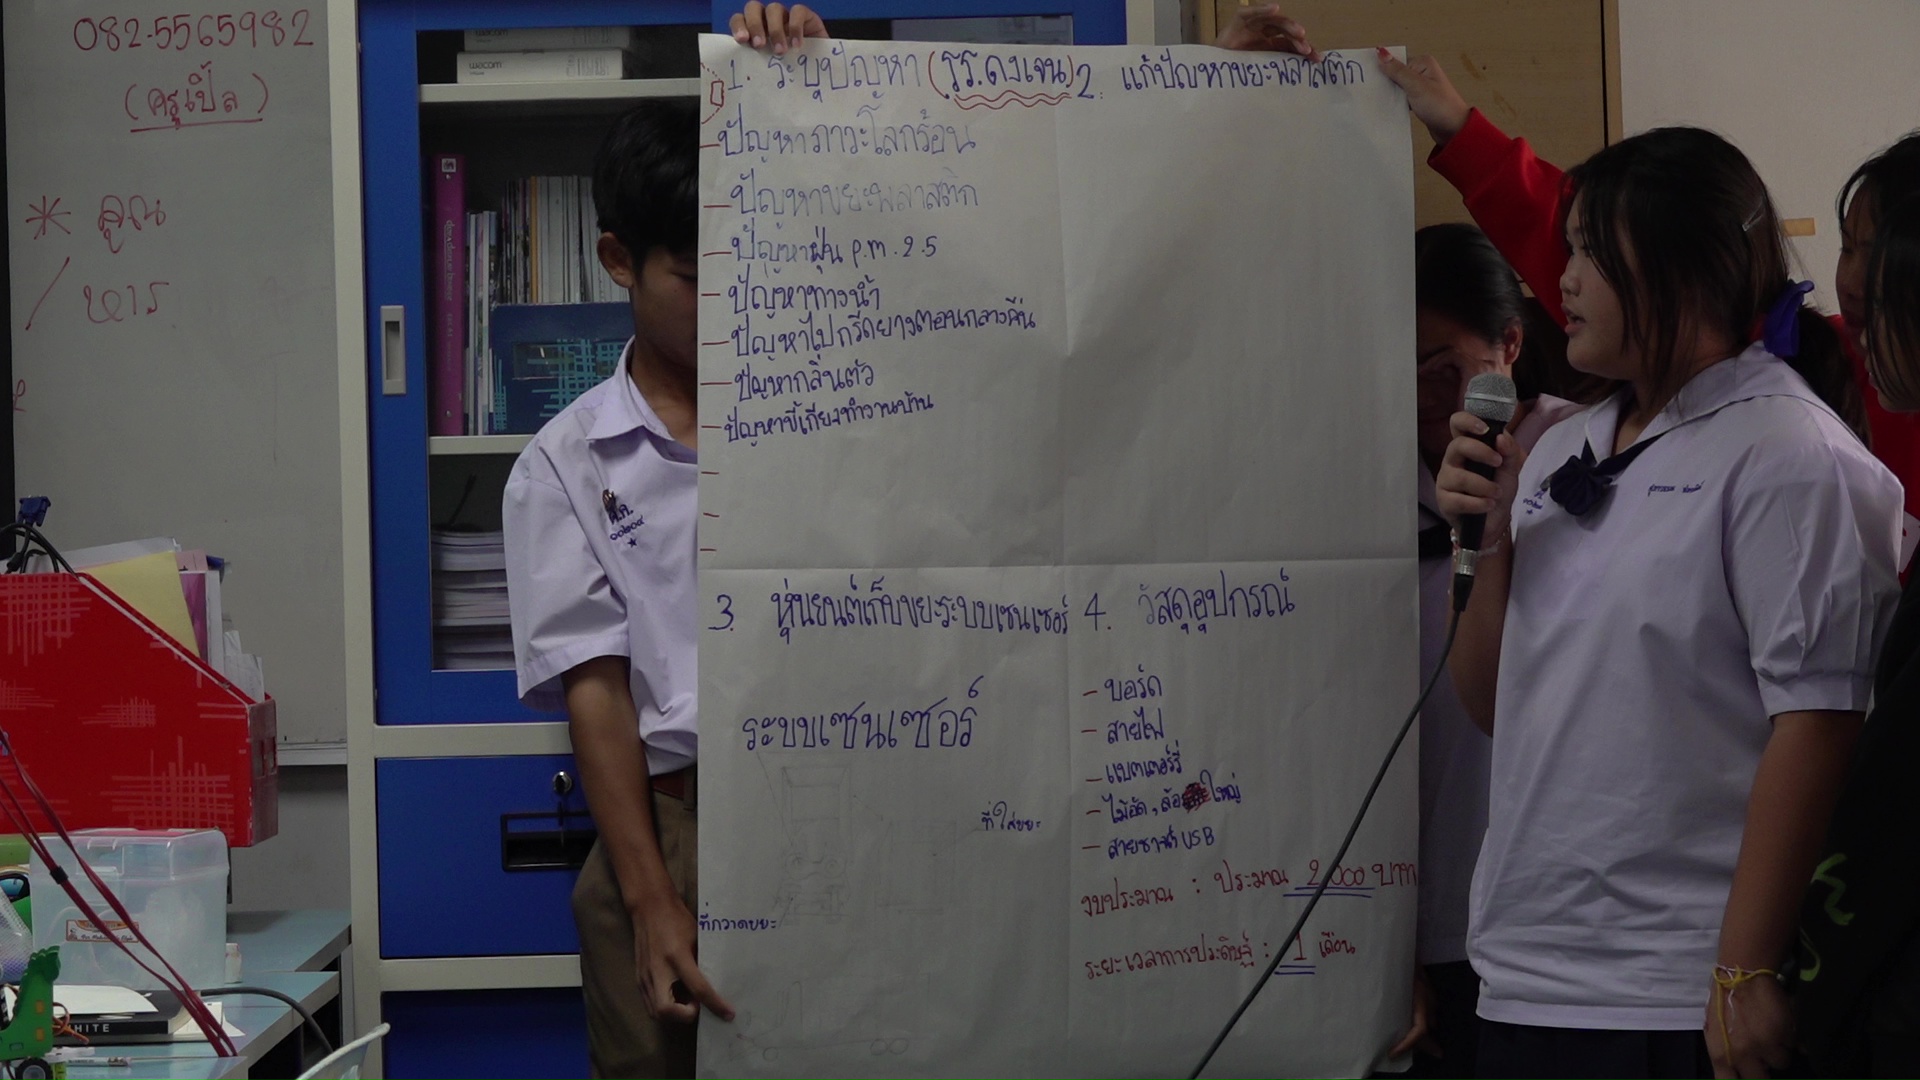 082-5565982
(ครูเปิ้ล)
* คูณ
/ หาร
wacom
wacom
1. ระบุปัญหา (รร.ดงเจน)
- ปัญหาภาวะโลกร้อน
- ปัญหาขยะพลาสติก
- ปัญหาฝุ่น P.m. 2.5
- ปัญหาทางน้ำ
- ปัญหาไปกรีดยางตอนกลางคืน
- ปัญหากลิ่นตัว
- ปัญหาขี้เกียจทำงานบ้าน
2. แก้ปัญหาขยะพลาสติก
3. หุ่นยนต์เก็บขยะระบบเซนเซอร์
ระบบเซนเซอร์
ที่ใส่ขยะ
ที่กวาดขยะ
4. วัสดุอุปกรณ์
- บอร์ด
- สายไฟ
- แบตเตอร์รี่
- ไม้อัด, ล้อ ใหญ่
- สายชาร์จ USB
งบประมาณ : ประมาณ 2,000 บาท
ระยะเวลาการประดิษฐ์ : 1 เดือน
๑๐๒๐๔